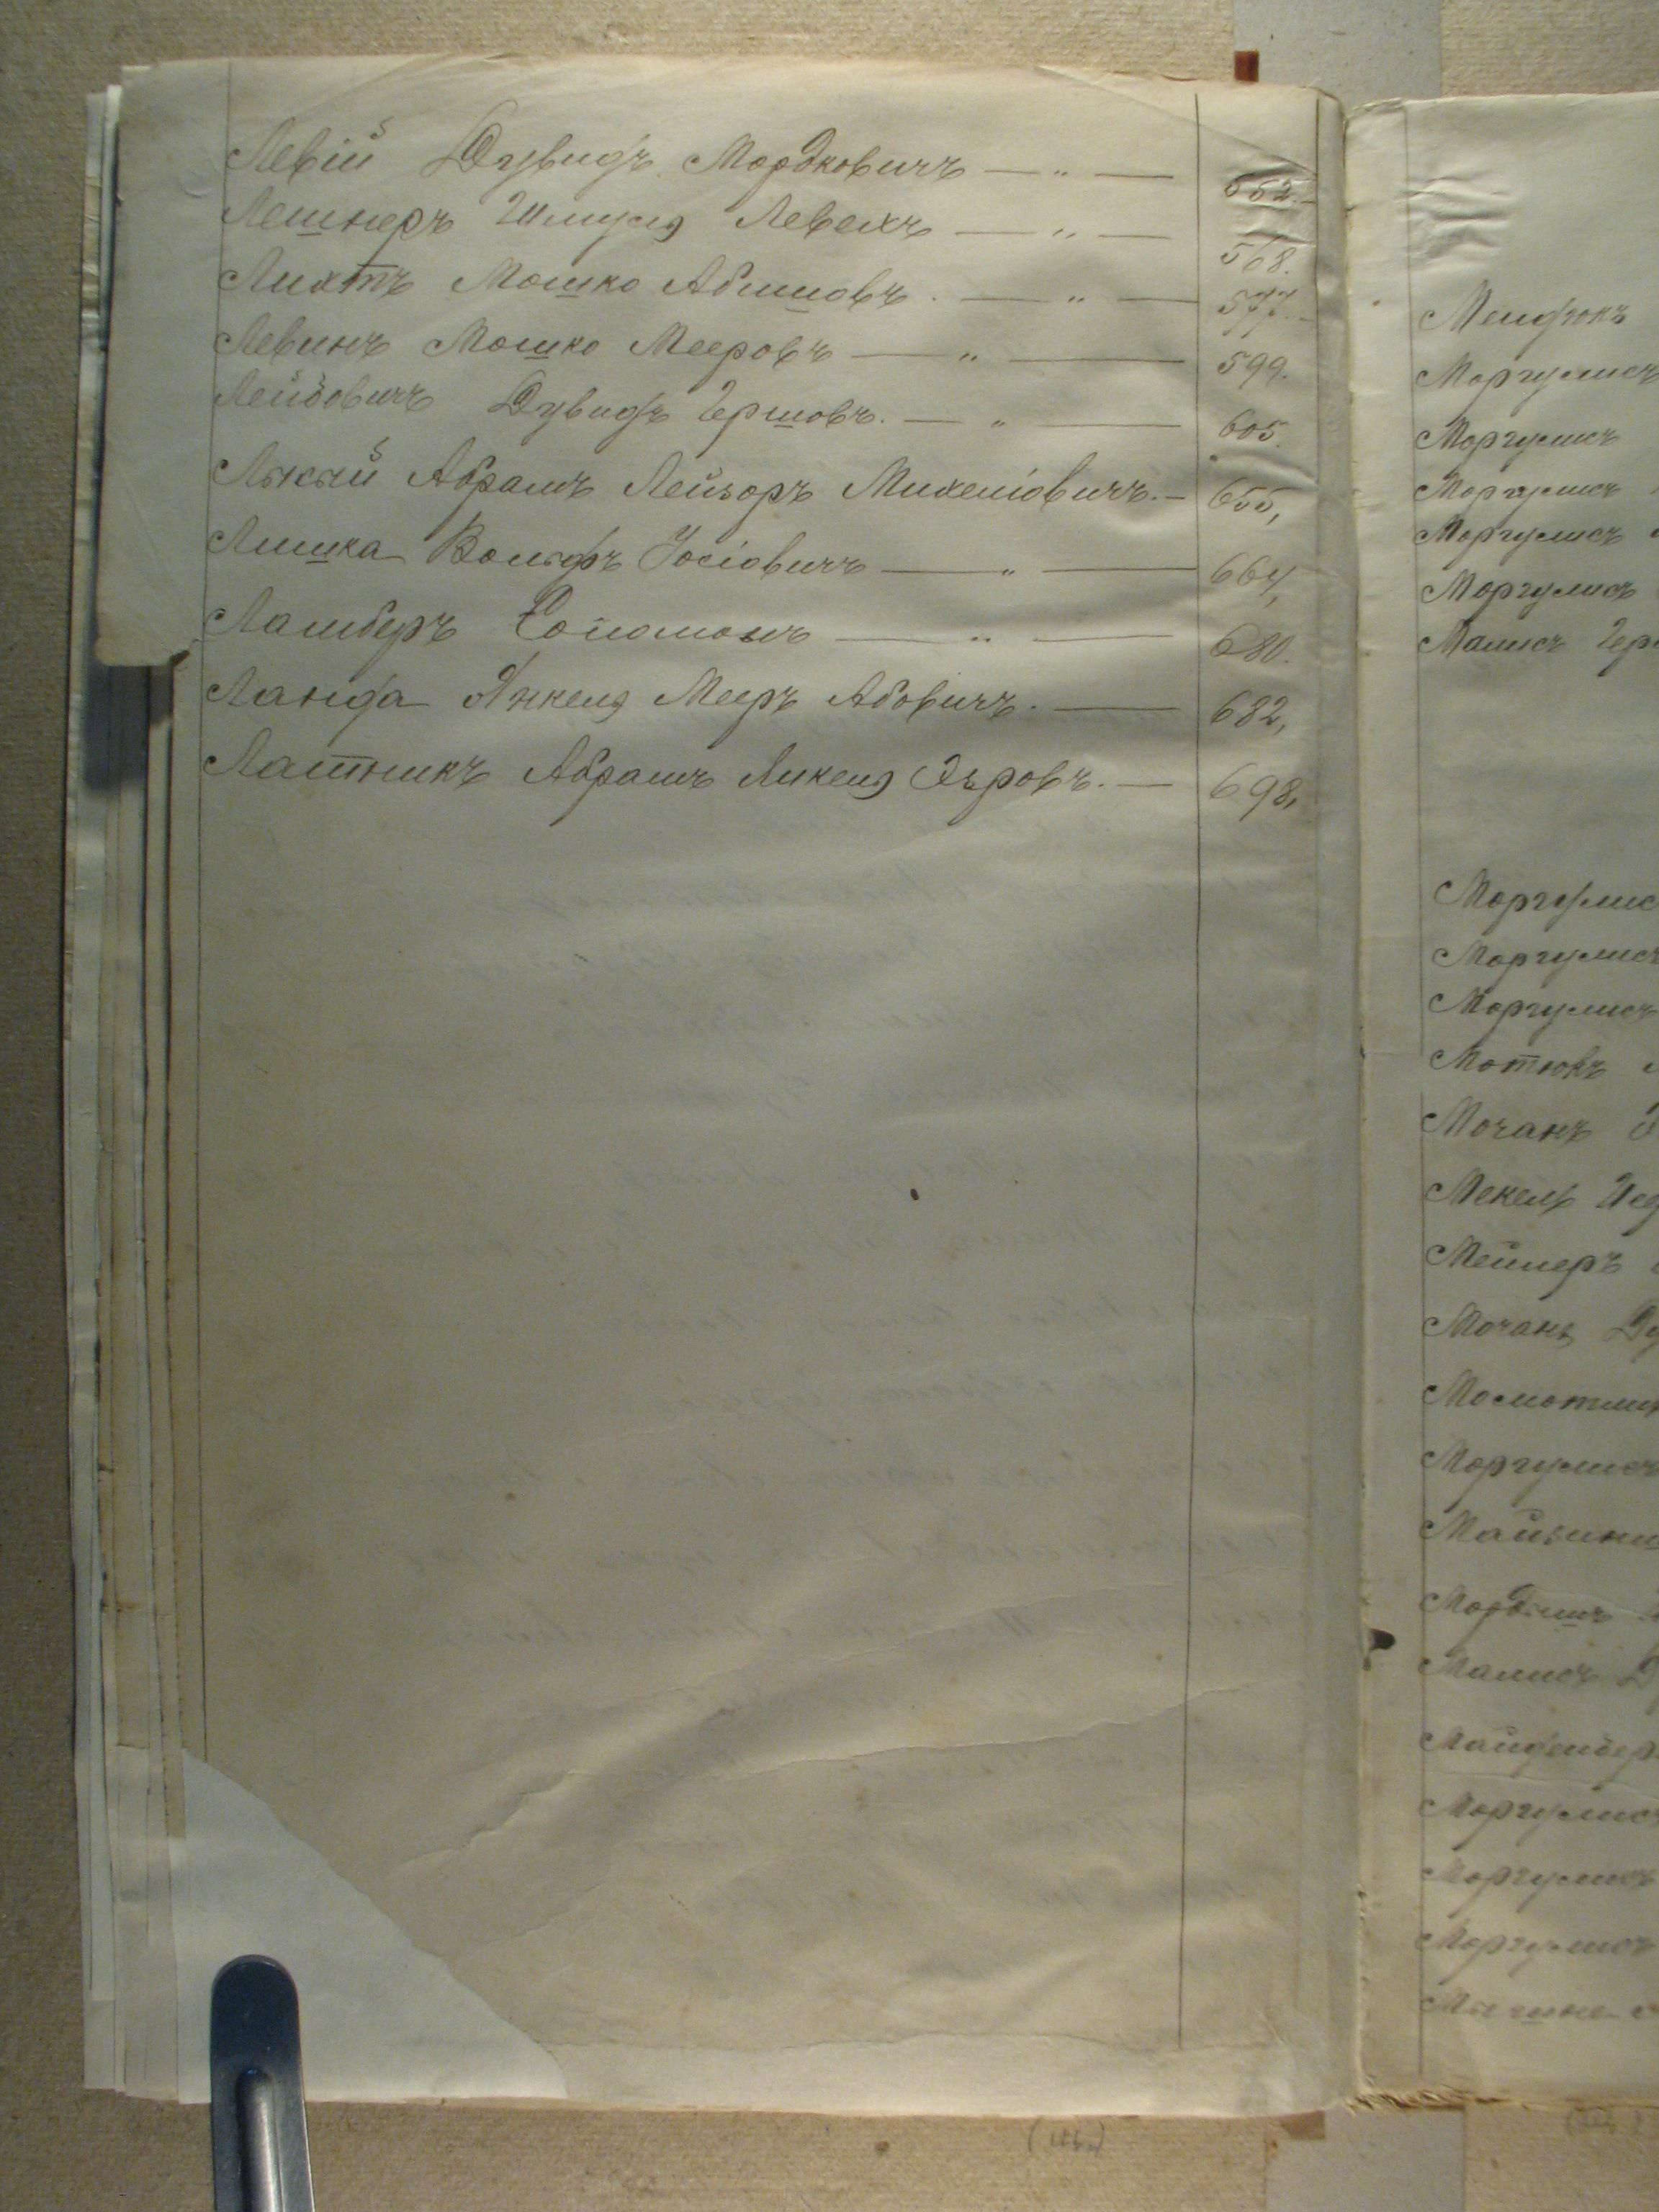 Левій Дувидъ Мордковичъ — „ — 552.
Лешнеръ Шмуля Левехъ — „ — 568.
Лихтъ Мошко Абишовъ. — „ — 577.
Левинъ Мошко Мееровъ — „ — 599.
Лейбовичъ Дувидъ Гершовъ. — „ — 605.
Лысый Абрамъ Лейзоръ Михеліовичъ. — 655,
Лишка Вольфъ Іосіовичъ — „ — 664,
Ламберъ Соломонъ — „ — 680.
Ланда Янкеля Мееръ Абовичъ. — 682,
Латникъ Абрамъ Янкеля — 698,
Мендюкъ
Моргулисъ
Моргулисъ
Моргулисъ
Моргулисъ
Моргулисъ
Малисъ Гер
Моргулис
Моргулисъ
Моргулисъ
Мотюкъ
Мочанъ
Мекель
Мейлеръ
Мочанъ Ду
Моргулисъ
Малисъ Д
Моргулисъ
Моргулисъ
Моргулисъ